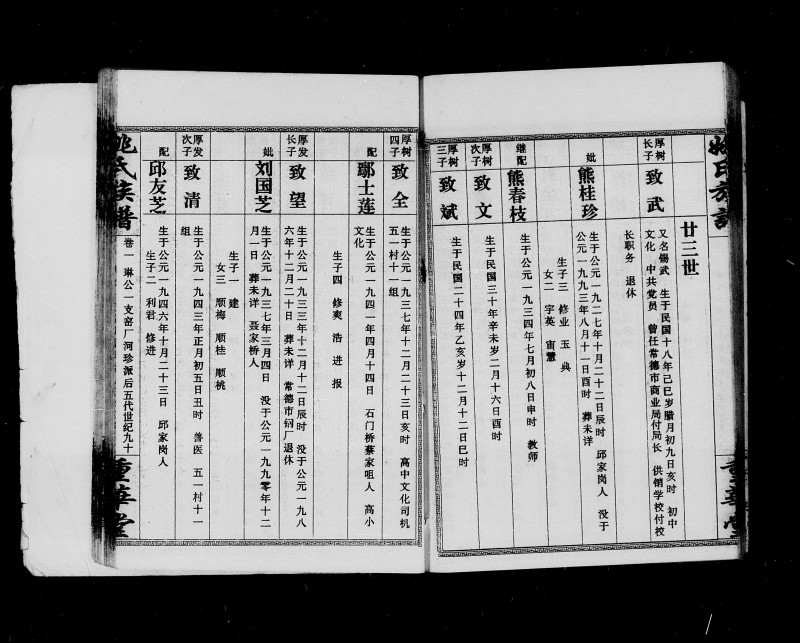 廿三世
厚树长子 致武
又名锡武 生于民国十八年己巳岁腊月初九日亥时 初中
文化 中共党员 曾任常德市商业局付局长 供销学校付校
长职务 退休
妣 熊桂珍
生于公元一九二七年十月二十二日辰时 邱家岗人 没于
公元一九九三年八月十一日酉时 葬未详
生子三 修业 玉 典
女二 字英 宙慧
继配 熊春枝
生于公元一九三四年七月初八日申时 教师
厚树次子 致文
生于民国三十年辛未岁二月十六日酉时
厚树三子 致斌
生于民国二十四年乙亥岁十二月十二日巳时
厚树四子 致全
生于公元一九三七年十二月二十三日亥时 高中文化司机
五一村十一组
配 鄢士莲
生于公元一九四一年四月十四日 石门桥蔡家咀人 高小
文化
生子四 修爽 浩 进 报
厚发长子 致望
生于公元一九三三年十二月十二日辰时 没于公元一九八
六年十二月二十日 葬未详 常德市钢厂退休
妣 刘国芝
生于公元一九三七年三月四日 没于公元一九九零年十二
月一日 葬未详 聂家桥人
生子一 建
女三 顺梅 顺桂 顺桃
厚发次子 致清
生于公元一九四三年正月初五日丑时 兽医 五一村十一
组
配 邱友芝
生于公元一九四六年十月二十三日 邱家岗人
生子二 利君 修进
姚氏族谱 卷一 琳公一支窑厂河珍派后五代世纪九十 重华堂